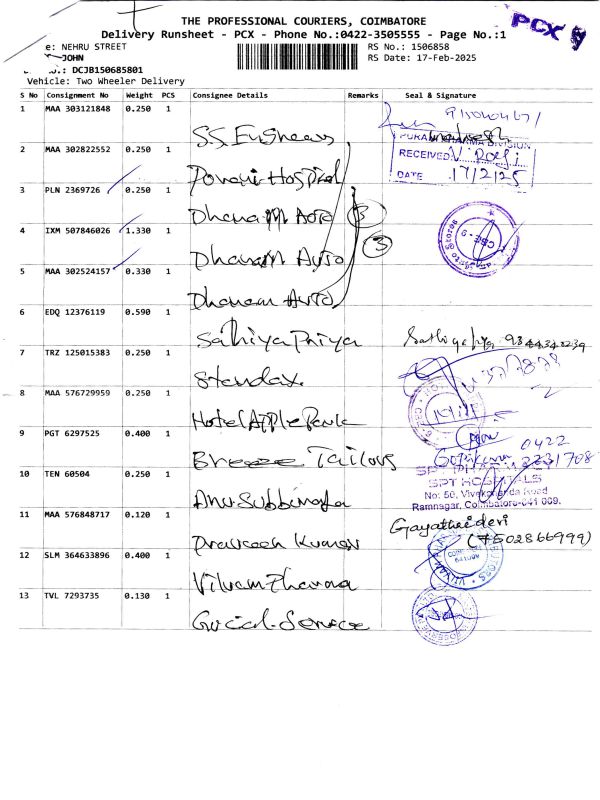 THE PROFESSIONAL COURIERS, COIMBATORE
Delivery Runsheet - PCX - Phone No.:0422-3505555 - Page No.:1
PCX
e: NEHRU STREET
RS No.: 1506858
JOHN
RS Date: 17-Feb-2025
DCJB150685801
Vehicle: Two Wheeler Delivery
S No Consignment No Weight PCS Consignee Details Remarks Seal & Signature
1 MAA 303121848 0.250 1
RECEIVED
DATE 17/2/25
2 MAA 302822552 0.250 1 Ponani Hospital
3 PLN 2369726 0.250 1 Dhanam Auto 3
4 IXM 507846026 1.330 1 Dhanam Auto 3
5 MAA 302524157 0.330 1 Dhanam Auto
6 EDQ 12376119 0.590 1 Sathiya Priya
7 TRZ 125015383 0.250 1 Standax.
8 MAA 576729959 0.250 1 Hotel Apple Park
9 PGT 6297525 0.400 1 Breeze Tailors
0422
2231708
SPT HOSPITALS
No: 50, Vivekananda Road
Ramnagar, Coimbatore-641 009.
10 TEN 60504 0.250 1
11 MAA 576848717 0.120 1 Praveen Kumar
Gayathridevi
(7502866999)
12 SLM 364633896 0.400 1 Vilvam Pharma
13 TVL 7293735 0.130 1 Social Service